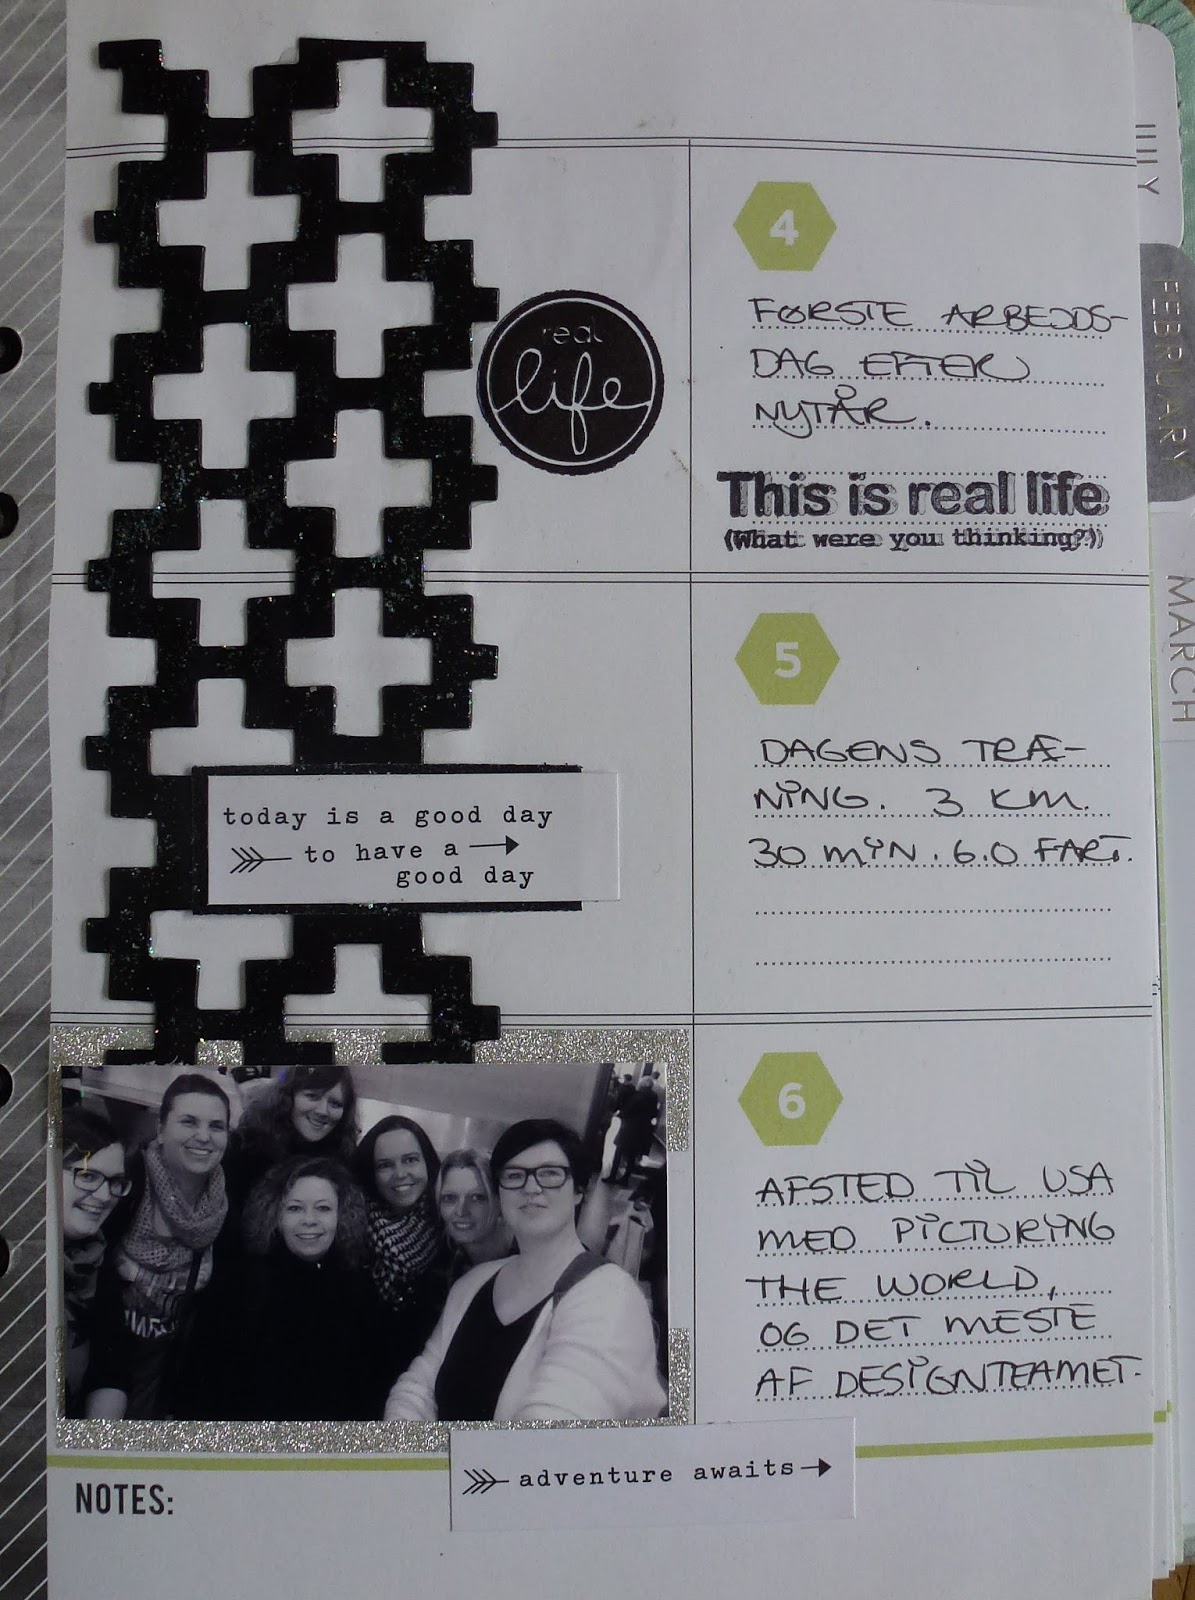 4
FØRSTE ARBEJDS-
DAG EFTER
NYTÅR.
real
life
This is real life
(What were you thinking?)
5
DAGENS TRÆ-
NING. 3 KM.
30 MIN. 6.0 FART.
today is a good day
to have a
good day
6
AFSTED TIL USA
MED PICTURING
THE WORLD,
OG DET MESTE
AF DESIGNTEAMET.
adventure awaits
NOTES:
FEBRUARY
MARCH